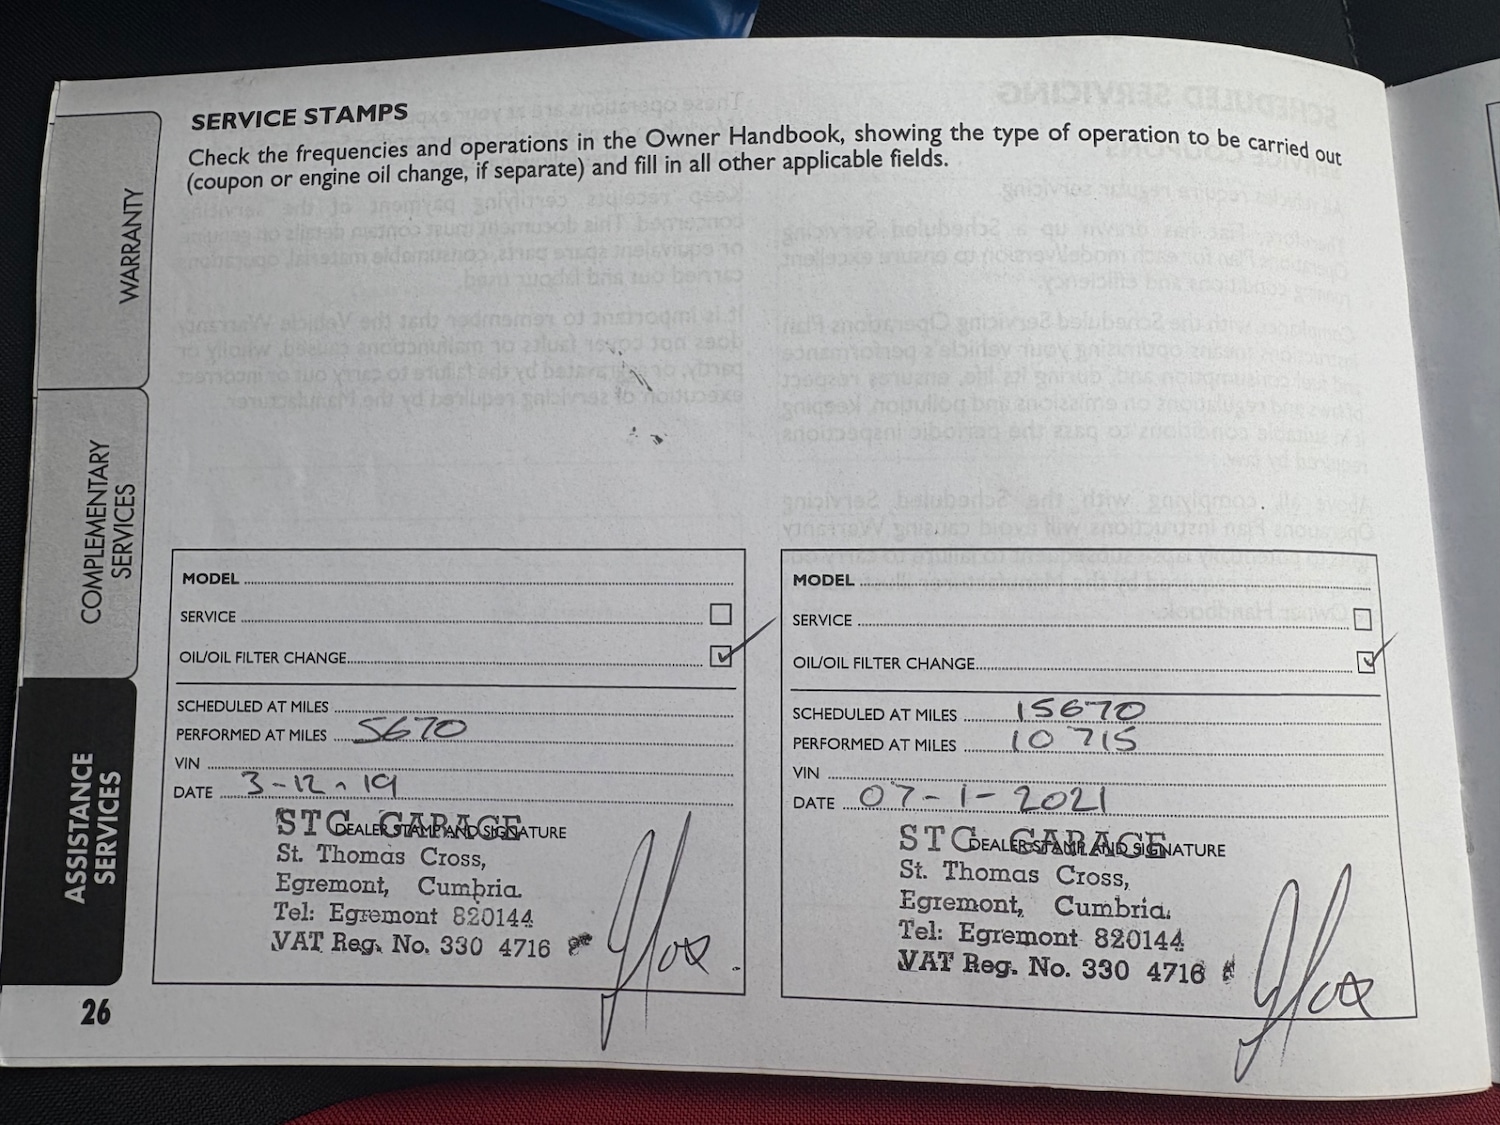 SERVICE STAMPS
Check the frequencies and operations in the Owner Handbook, showing the type of operation to be carried out
(coupon or engine oil change, if separate) and fill in all other applicable fields.
WARRANTY
COMPLEMENTARY
SERVICES
ASSISTANCE
SERVICES
MODEL
SERVICE
OIL/OIL FILTER CHANGE
SCHEDULED AT MILES
PERFORMED AT MILES 5670
VIN
DATE 3-12-19
DEALER STAMP AND SIGNATURE
STG GARAGE
St. Thomas Cross,
Egremont, Cumbria.
Tel: Egremont 820144
VAT Reg. No. 330 4716
MODEL
SERVICE
OIL/OIL FILTER CHANGE
SCHEDULED AT MILES 15670
PERFORMED AT MILES 10 715
VIN
DATE 07-1-2021
DEALER STAMP AND SIGNATURE
GARAGE
St. Thomas Cross,
Egremont, Cumbria.
Tel: Egremont 820144
VAT Reg. No. 330 4716
26